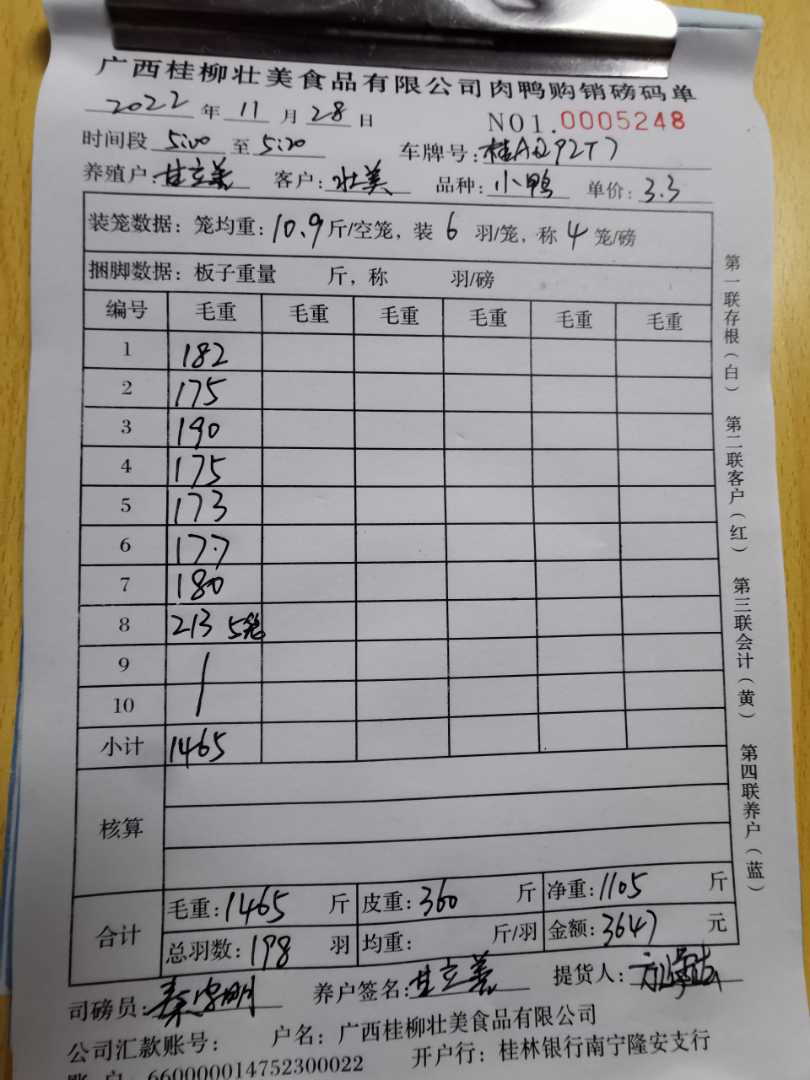 广西桂柳壮美食品有限公司肉鸭购销磅码单
2022 年 11 月 28 日 NO1.0005248
时间段 5:00 至 5:20 车牌号:桂AQ92T7
养殖户:甘立美 客户:壮美 品种:小鸭 单价:3.3
装笼数据:笼均重:10.9斤/空笼,装 6 羽/笼,称 4 笼/磅
捆脚数据:板子重量 斤,称 羽/磅
编号 毛重 毛重 毛重 毛重 毛重 毛重
1 182
2 175
3 190
4 175
5 173
6 177
7 180
8 213 5笼
9
10
小计 1465
核算
合计 毛重:1465 斤 皮重:360 斤 净重:1105 斤
总羽数:198 羽 均重: 斤/羽 金额:3647 元
司磅员: 养户签名:甘立美 提货人:
公司汇款账号: 户名:广西桂柳壮美食品有限公司
账户:660000014752300022 开户行:桂林银行南宁隆安支行
第一联存根(白) 第二联客户(红) 第三联会计(黄) 第四联养户(蓝)